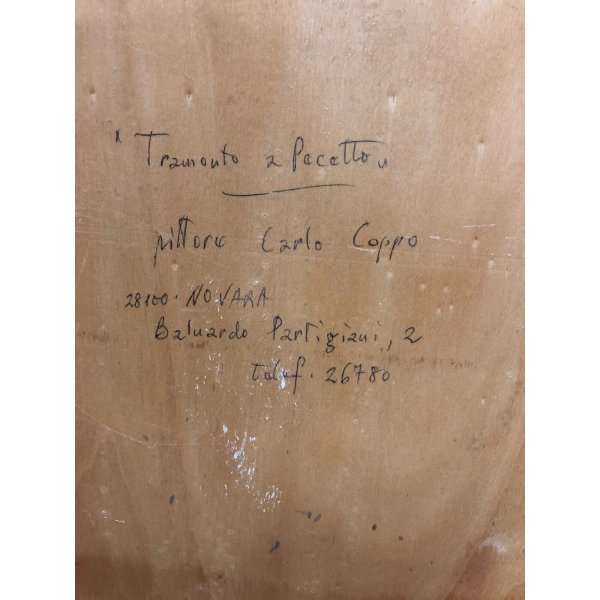 "Tramonto a Pecetto"
pittore Carlo Coppo
28100 · NOVARA
Baluardo Partigiani, 2
telef. 26780